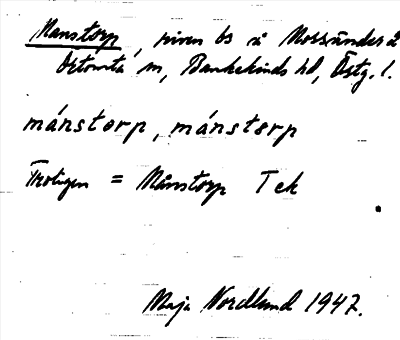 Manstorp, riven bs å Mossänder å
Örtomta sn, Bankekinds hd, Östg. l.
mánstorp, mánstərp
Troligen = Månstorp T ek
Maja Nordlund 1947.